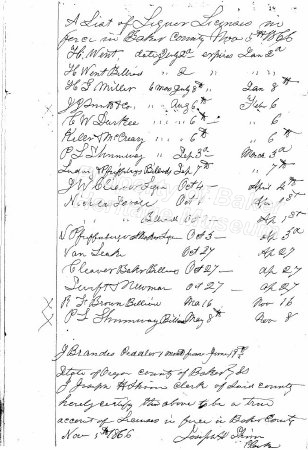 A List of Liquor Licenses in
force in Baker County Nov 5th 1866
H. Went. date July 2d expires Jan 2d
H Went Billiard " 2 " " "
H. S. Miller 6 mos July 8th " Jan 8th
J J Smith & Co. " Aug 6th " Feb 6
E W Durkee " " 6th " " 6
Kiler McCreary " " 6th " " 6
P L Shumway " Sep 3d March 3d
Pfeiffenberger Billiard Sep 7th " 7th
J W Cleaver Oct 4 — April 4th
Oct 1 Apr 1st
" " Billiard Oct 1 — Ap 1st
Oct 3 — Ap 3d
Van Leah Oct 27 Ap 27
Cleaver Baker Billiard Oct 27 — Ap 27
Swift & Newman Oct 27 — Ap 27
R F Brown Billiard Ma 16 Nov 16
P L Shumway Billiard May 8th Nov 8
J Brandes Peddler 6 months from June 19th
State of Oregon County of Baker SS
I Joseph H Shinn Clerk of Said County
hereby certify the above to be a true
account of Licenses in force in Baker County
Nov 5th 1866 Joseph H Shinn
Clerk